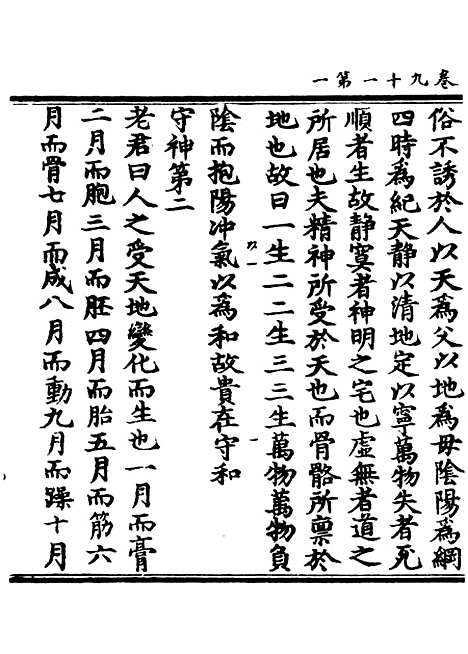 卷九十一第一
俗不誘於人以天爲父以地爲母陰陽爲綱
四時爲紀天静以清地定以寧萬物失者死
順者生故静寞者神明之宅也虛無者道之
所居也夫精神所受於天也而骨骼所禀於
地也故曰一生二二生三三生萬物萬物負
陰而抱陽冲氣以爲和故貴在守和
守神第二
老君曰人之受天地變化而生也一月而膏
二月而胞三月而胚四月而胎五月而筋六
月而骨七月而成八月而動九月而躁十月